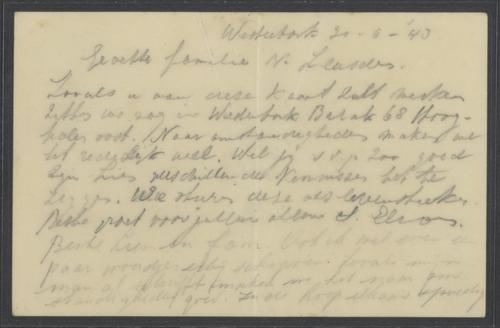 Westerbork 20-6-'43
Geachte familie N. Leusder.
Zooals u aan deze kaart zult merken
zitten we nog in Westerbork Barak 68 Hoog-
halen oost. Naar omstandigheden maken we
het redelijk wel. Wil je s.v.p. zoo goed
zijn Lies verschillende Kennissen het te
zeggen. We sturen deze als levensteeken.
Beste groet voor jullie allen S. Elsas.
Beste Lien en fam. Ook ik wil even een
paar woordjes schrijven. Zooals mijn
man al schrijft maken we het naar om-
standigheden goed. In de hoop elkaar spoedig